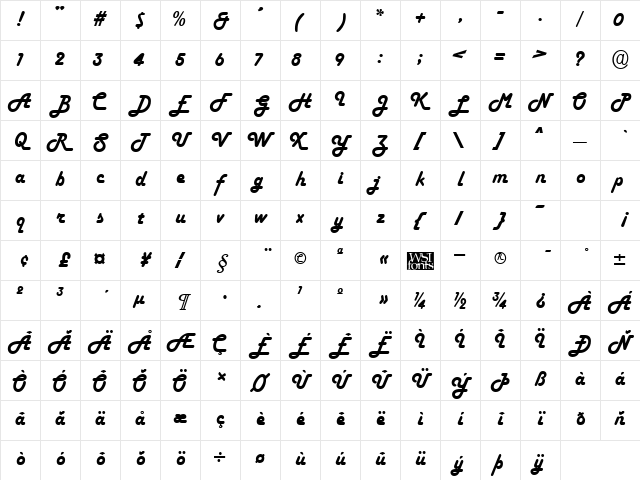 ! " # $ % & ' ( ) * + , - . / 0
1 2 3 4 5 6 7 8 9 : ; < = > ? @
A B C D E F G H I J K L M N O P
Q R S T U V W X Y Z [ \ ] ^ _ `
a b c d e f g h i j k l m n o p
q r s t u v w x y z { | } ~ ¡
¢ £ ¤ ¥ ¦ § ¨ © ª « WSI fonts ­— ® ¯ ° ±
² ³ ´ µ ¶ · . ¹ º » ¼ ½ ¾ ¿ À Á
Â Ã Ä Å Æ Ç È É Ê Ë Ì Í Î Ï Ð Ñ
Ò Ó Ô Õ Ö × Ø Ù Ú Û Ü Ý Þ ß à á
â ã ä å æ ç è é ê ë ì í î ï ð ñ
ò ó ô õ ö ÷ ø ù ú û ü ý þ ÿ